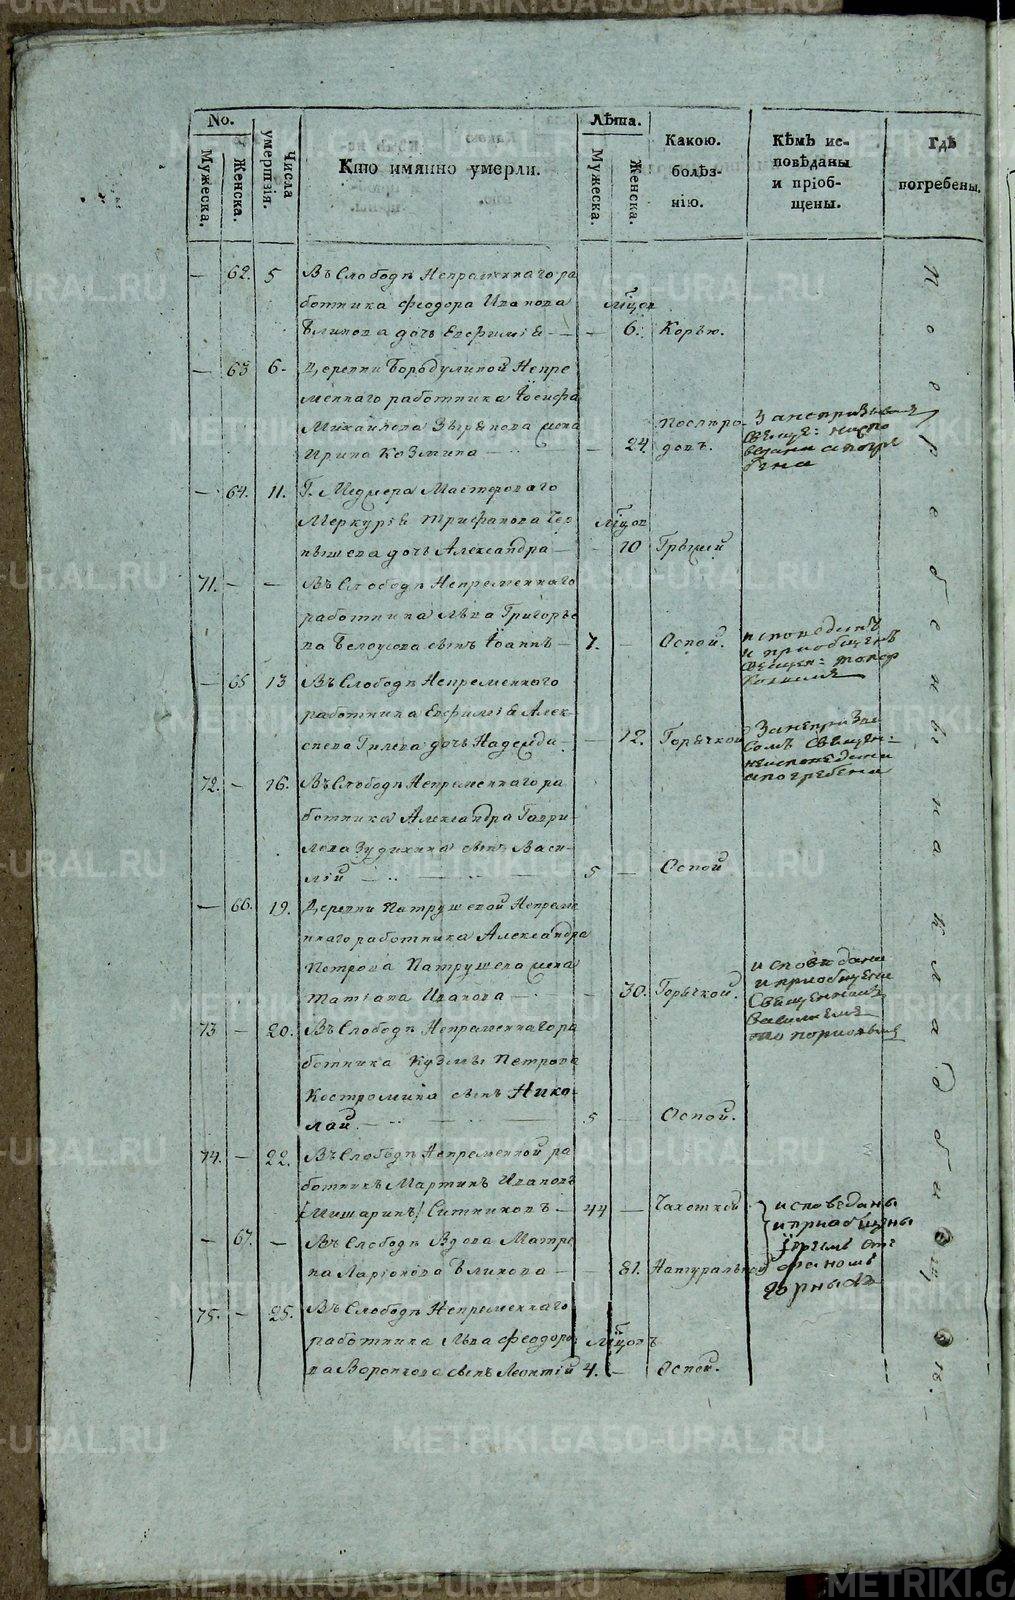 No.
Мужеска.
Женска.
Числа умертвія.
Кто имянно умерли.
Лѣта.
Мужеска.
Женска.
Какою.
болѣз-
нію.
Кѣмъ ис-
повѣданы
и пріоб-
щены.
Гдѣ
погребены.
— 62. 5 Въ Слободѣ Непременнаго ра
ботника Феодора Иванова
дочь Евфимія — — 6. Корью.
— 63 6. Деревни Бородулиной Непре
меннаго работника Іосифа
Михайлова жена
Ирина Козмина — — 24. Послѣ родовъ.
— 64. 11. Мастероваго
Меркурія Трифанова Чер
нышева дочь Александра — — 10 Грыжей
71. — — Въ Слободѣ Непременнаго
работника Льва Григорье
ва Белоусова сынъ Іоаннъ — 7. — Оспой.
исповеданъ
и приобщенъ
священ:
— 65 13 Въ Слободѣ Непременнаго
работника Евфимія Алек
сеева Гилева дочь Надежда — 12. Горячкой
священ:
неисповедана
а погребена
72. — 16. Въ Слободѣ Непременнаго ра
ботника Александра Гаври
лова Зудихина сынъ Васи
лій — 5 — Оспой
— 66. 19. Деревни Патрушевой Непреме
ннаго работника Александра
Петрова Патрушева жена
Татіана Иванова — — 30. Горячкой.
исповедана
и приобщена
Священникомъ
Василіемъ
73 — 20. Въ Слободѣ Непременнаго ра
ботника Кузмы Петрова
Костромина сынъ Нико
лай. — 5 — Оспой.
74. — 22. Въ Слободѣ Непременной ра
ботникъ Мартинъ Ивановъ
(Мишаринъ) Ситниковъ — 44 — Чахоткой
исповеданы
и приобщены
— 67. — Въ Слободѣ Вдова Матре
на Ларіонова — — 81. Натуральной
75. — 25. Въ Слободѣ Непременнаго
работника Льва Феодоро
ва Воронова сынъ Леонтій 4. — Оспой.
Погребены на кладбищѣ
METRIKI.GASO-URAL.RU